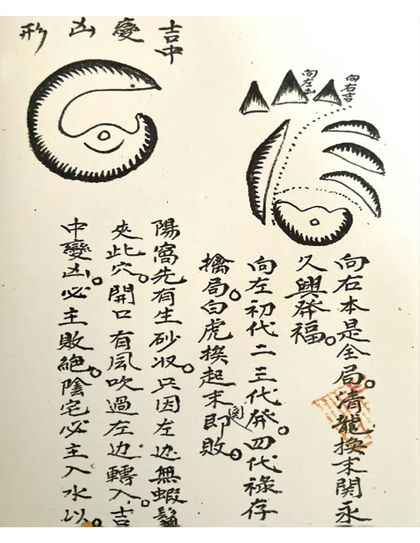 向右吉
向左凶
向右本是全局。清龍挨末関永
久興發福。
向左初代二三代發四代祿存
擒局。白虎挨起末即敗。
吉中變凶形
陽窩先有生砂収。只因左边無蝦鬚
夾此穴。開口有風吹過左边轉入。吉
中變凶。必主敗絕。陰宅必主入水以。